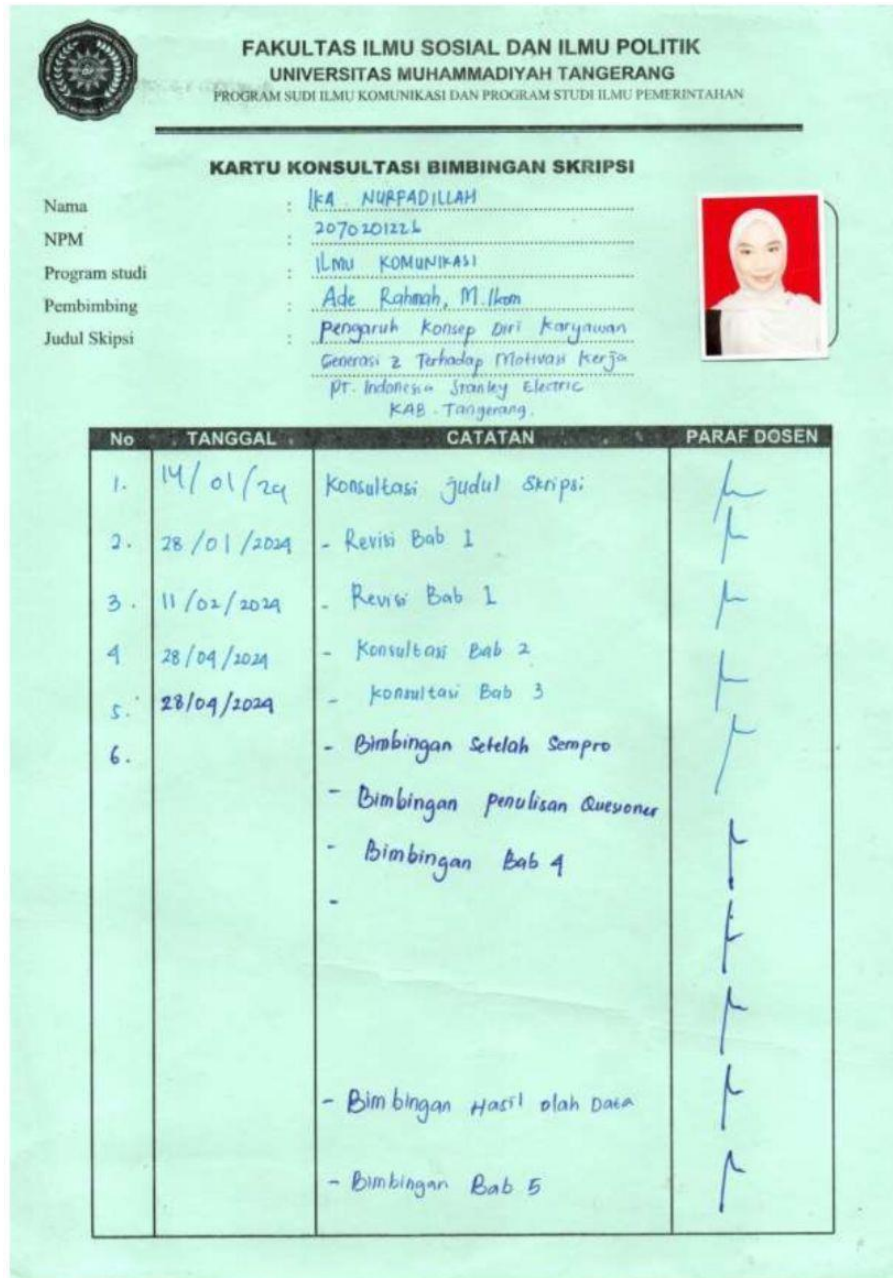 FAKULTAS ILMU SOSIAL DAN ILMU POLITIK
UNIVERSITAS MUHAMMADIYAH TANGERANG
PROGRAM SUDI ILMU KOMUNIKASI DAN PROGRAM STUDI ILMU PEMERINTAHAN
KARTU KONSULTASI BIMBINGAN SKRIPSI
Nama : IKA NURFADILLAH
NPM : 2070201226
Program studi : ILMU KOMUNIKASI
Pembimbing : Ade Rahmah, M.Ikom
Judul Skipsi : Pengaruh Konsep Diri Karyawan
Generasi Z Terhadap Motivasi Kerja
PT. Indonesia Stanley Electric
KAB. Tangerang.
No TANGGAL CATATAN PARAF DOSEN
1. 14/01/24 Konsultasi judul Skripsi
2. 28/01/2024 - Revisi Bab I
3. 11/02/2024 - Revisi Bab 1
4 28/04/2024 - Konsultasi Bab 2
5. 28/04/2024 - konsultasi Bab 3
6. - Bimbingan Setelah Sempro
- Bimbingan penulisan Quesioner
- Bimbingan Bab 4
-
- Bimbingan Hasil olah Data
- Bimbingan Bab 5